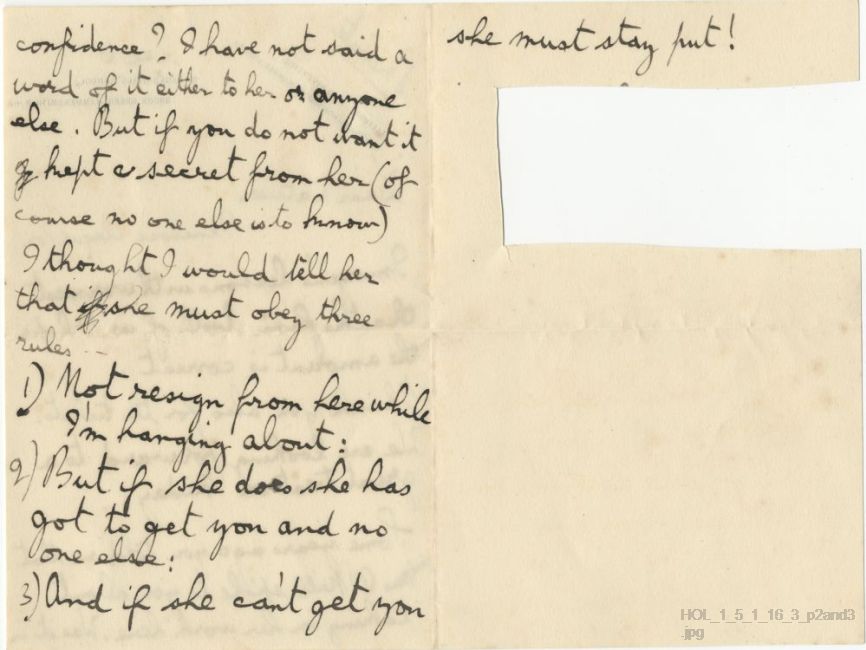 confidence? I have not said a
word of it either to her or anyone
else. But if you do not want it
kept a secret from her (of
course no one else is to know)
I thought I would tell her
that she must obey three
rules --
1) Not resign from here while
I'm hanging about:
2) But if she does she has
got to get you and no
one else:
3) And if she can't get you
she must stay put!
HOL_1_5_1_16_3_p2and3
.jpg